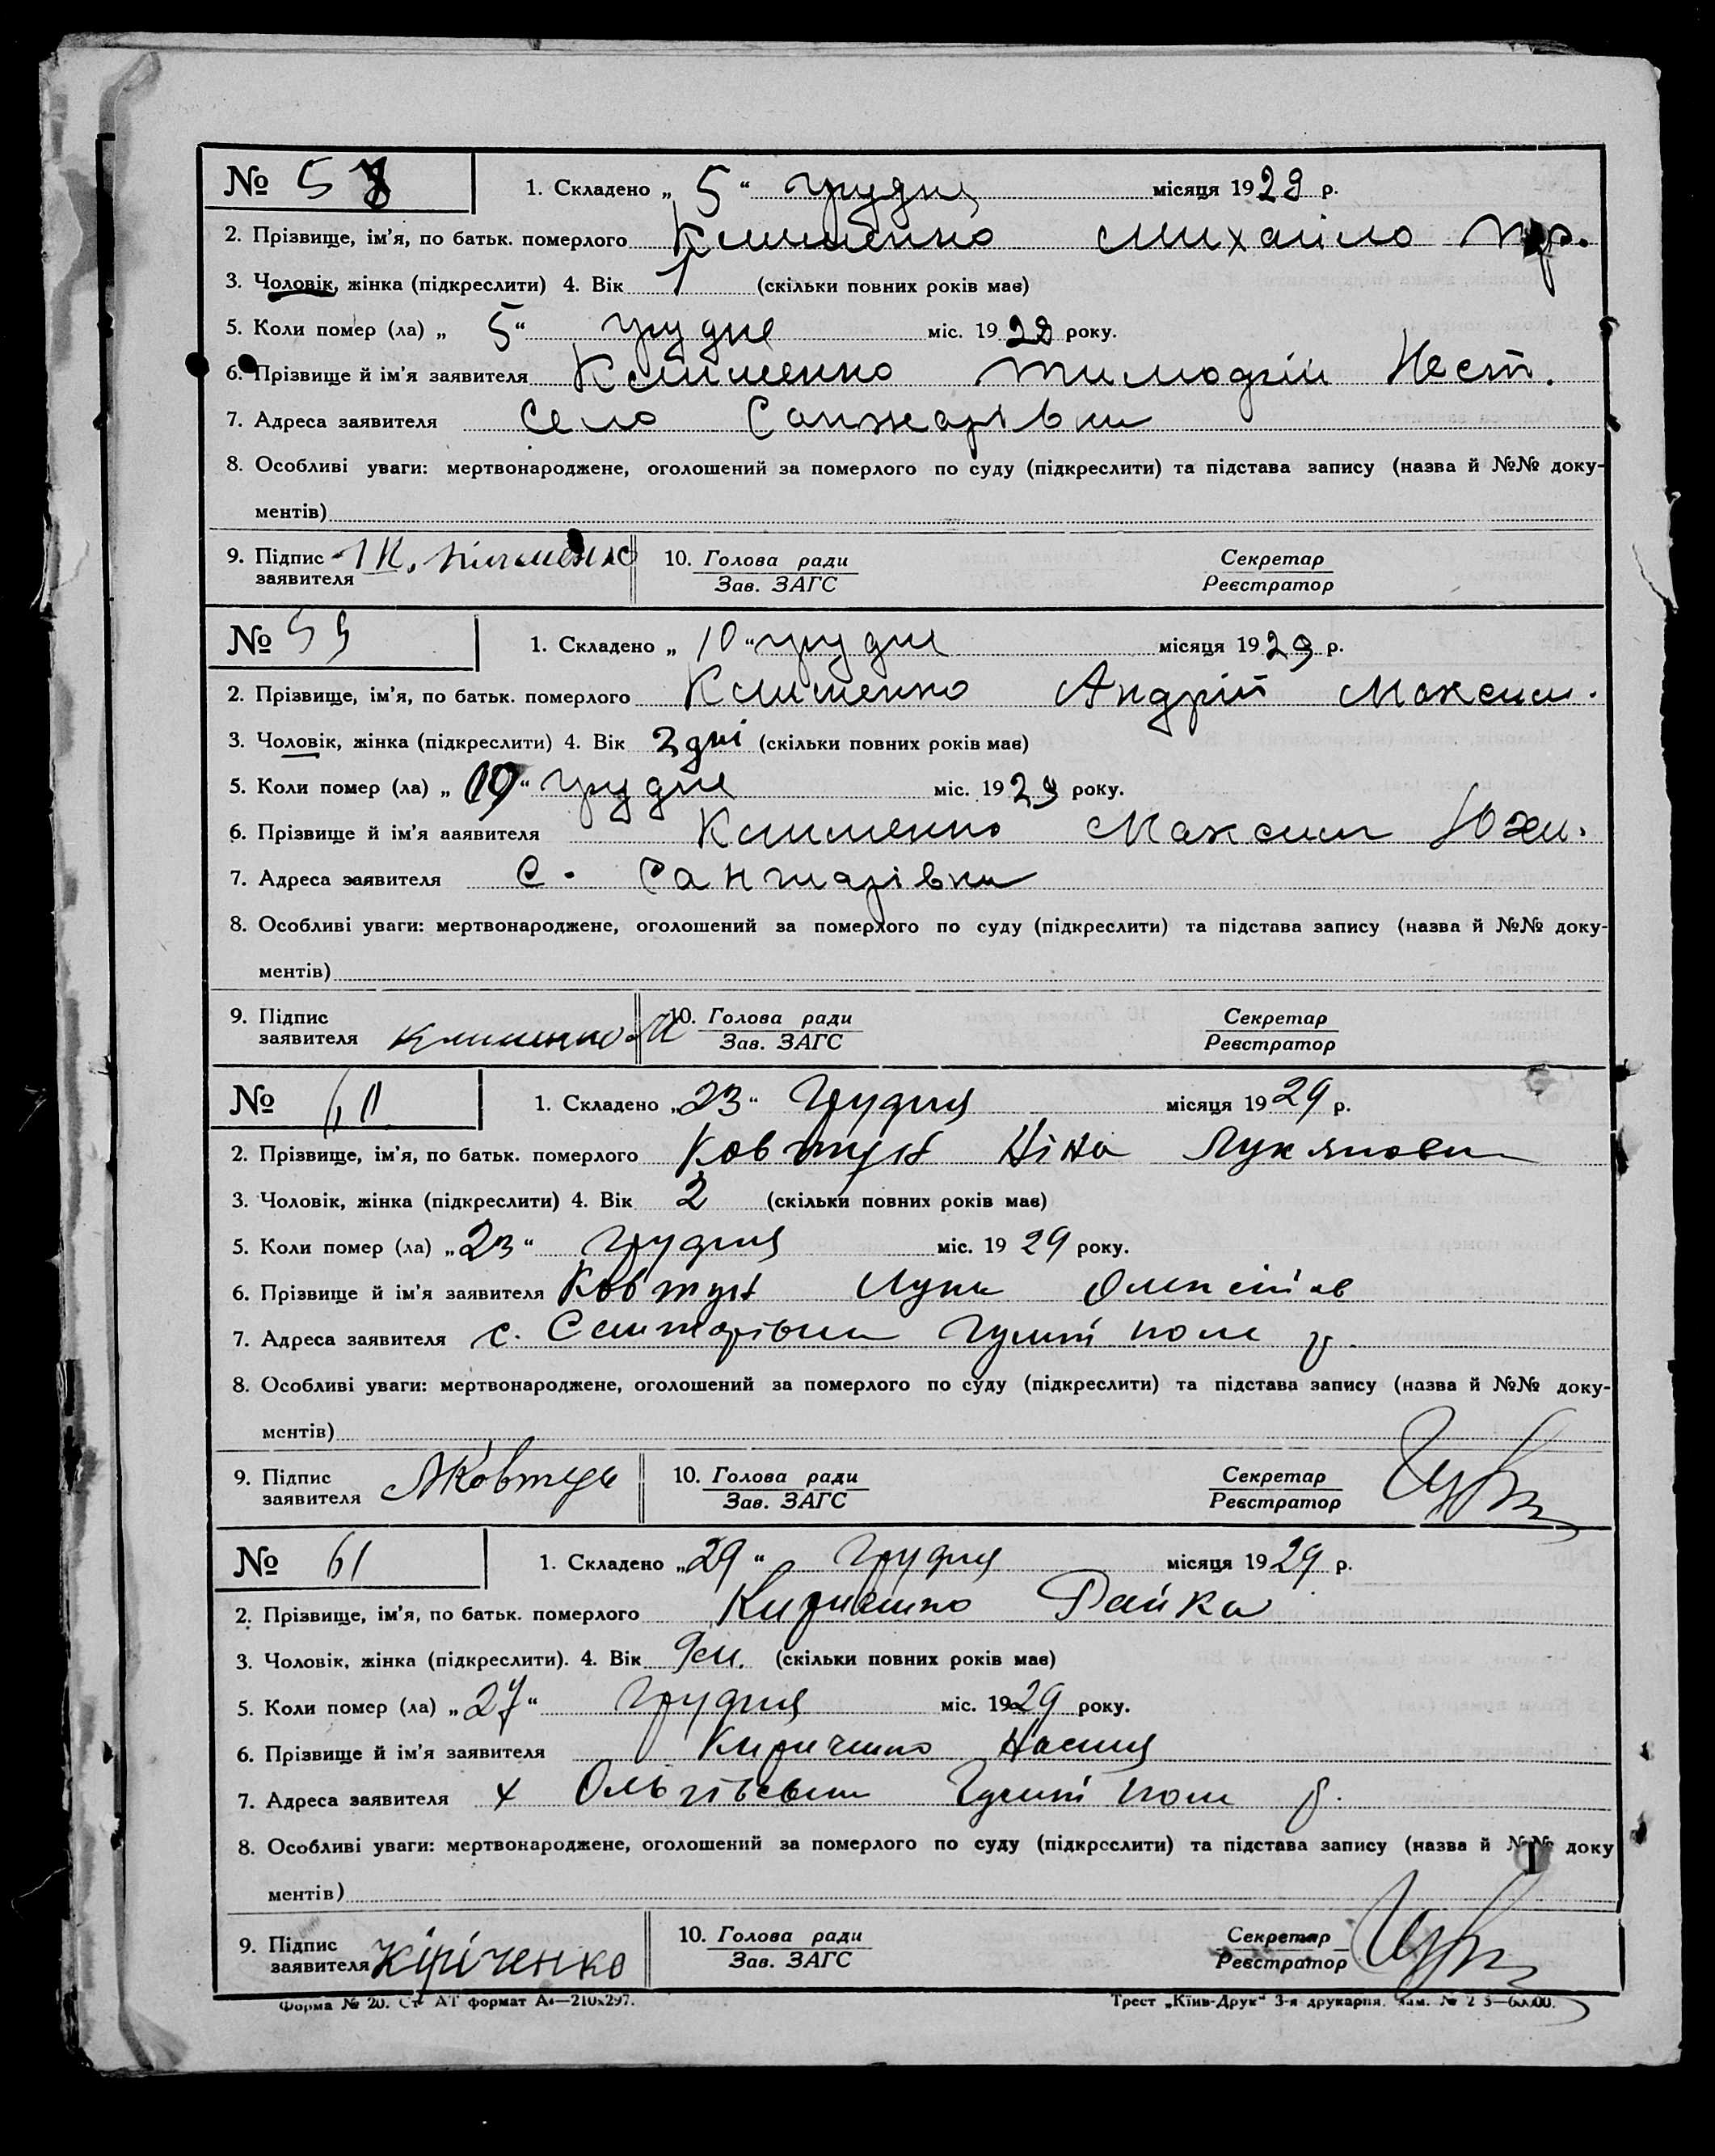 № 58 1. Складено „ 5 “ грудня місяця 1929 р.
2. Прізвище, ім'я, по батьк. померлого Клименко Михайло
3. Чоловік, жінка (підкреслити) 4. Вік 1 (скільки повних років має)
5. Коли помер (ла) „ 5 “ грудня міс. 1929 року.
6. Прізвище й ім'я заявителя Клименко Тимофій Нест.
7. Адреса заявителя село Санжарівки
8. Особливі уваги: мертвонароджене, оголошений за померлого по суду (підкреслити) та підстава запису (назва й №№ доку-
ментів)
9. Підпис заявителя Клименко 10. Голова ради Секретар
Зав. ЗАГС Реєстратор
№ 59 1. Складено „ 10 “ грудня місяця 1929 р.
2. Прізвище, ім'я, по батьк. померлого Клименко Андрій Максим.
3. Чоловік, жінка (підкреслити) 4. Вік 2 дні (скільки повних років має)
5. Коли помер (ла) „ 10 “ грудня міс. 1929 року.
6. Прізвище й ім'я ааявителя Клименко Максим Юхи.
7. Адреса заявителя с. Санжарівки
8. Особливі уваги: мертвонароджене, оголошений за померлого по суду (підкреслити) та підстава запису (назва й №№ доку-
ментів)
9. Підпис заявителя Клименко М 10. Голова ради Секретар
Зав. ЗАГС Реєстратор
№ 60 1. Складено „ 23 “ Грудня місяця 1929 р.
2. Прізвище, ім'я, по батьк. померлого Ковтун Ніна
3. Чоловік, жінка (підкреслити) 4. Вік 2 (скільки повних років має)
5. Коли помер (ла) „ 23 “ Грудня міс. 1929 року.
6. Прізвище й ім'я заявителя Ковтун
7. Адреса заявителя с. Санжарівки Гуляй поле р.
8. Особливі уваги: мертвонароджене, оголошений за померлого по суду (підкреслити) та підстава запису (назва й №№ доку-
ментів)
9. Підпис заявителя Ковтун 10. Голова ради Секретар
Зав. ЗАГС Реєстратор
№ 61 1. Складено „ 29 “ Грудня місяця 1929 р.
2. Прізвище, ім'я, по батьк. померлого Кириченко Райка
3. Чоловік, жінка (підкреслити). 4. Вік 9 м. (скільки повних років має)
5. Коли помер (ла) „ 27 “ Грудня міс. 1929 року.
6. Прізвище й ім'я заявителя Кириченко Настя
7. Адреса заявителя х Гуляй поле р.
8. Особливі уваги: мертвонароджене, оголошений за померлого по суду (підкреслити) та підстава запису (назва й №№ доку
ментів)
9. Підпис заявителя Кіріченко 10. Голова ради Секретар
Зав. ЗАГС Реєстратор
Форма № 20. Ст АТ формат А4—210x297. Трест „Київ-Друк“ 3-я друкарня.